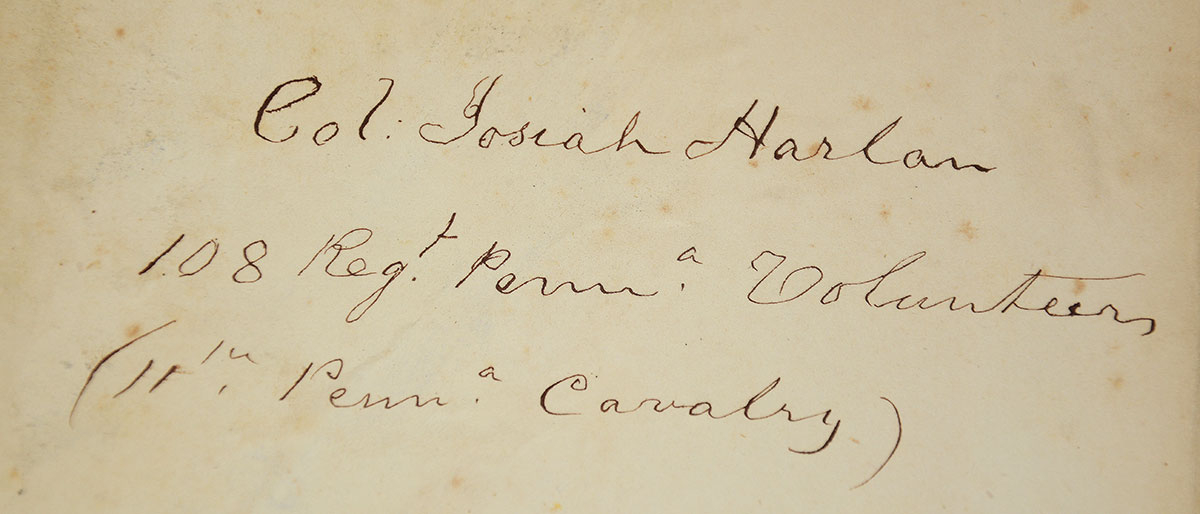 Col. Josiah Harlan
108 Reg.t Penn.a Volunteers
(11.th Penn.a Cavalry)